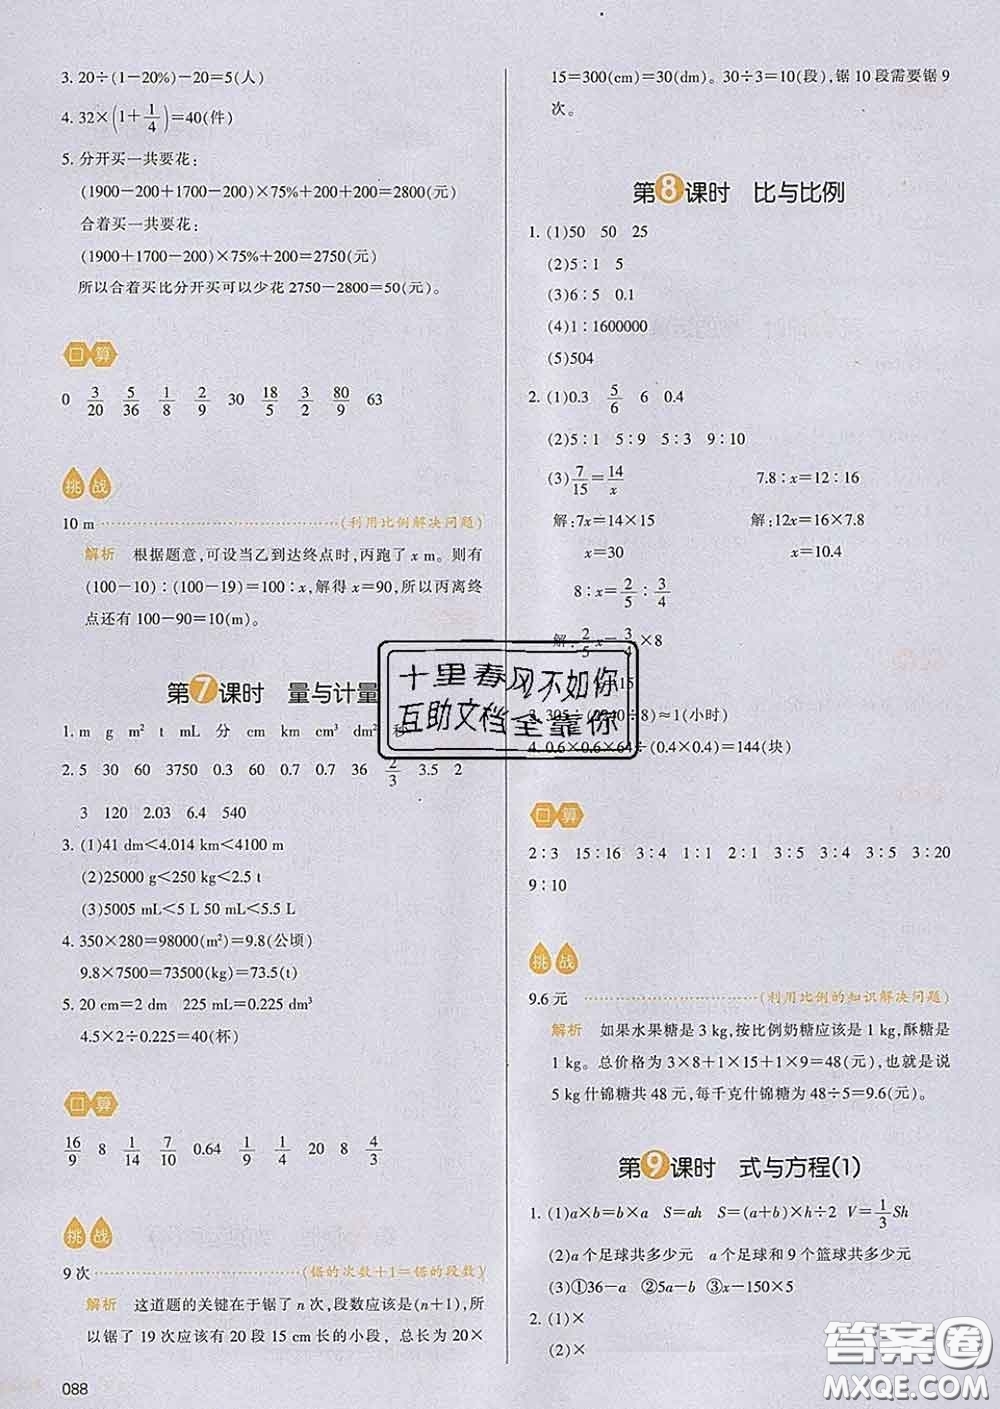 3. 20÷(1-20%)-20=5(人)
4. 32×(1+1/4)=40(件)
5. 分开买一共要花:
(1900-200+1700-200)×75%+200+200=2800(元)
合着买一共要花:
(1900+1700-200)×75%+200=2750(元)
所以合着买比分开买可以少花 2750-2800=50(元)。
口算
0 3/20 5/36 1/8 2/9 30 18/5 3/2 80/9 63
挑战
10 m (利用比例解决问题)
解析 根据题意,可设当乙到达终点时,丙跑了 x m。则有
(100-10):(100-19)=100:x,解得 x=90,所以丙离终
点还有 100-90=10(m)。
第7课时 量与计量
1. m g m² t mL 分 cm km cm³ dm² 秒
2. 5 30 60 3750 0.3 60 0.7 0.7 36 2/3 3.5 2
3 120 2.03 6.4 540
3. (1)41 dm<4.014 km<4100 m
(2)25000 g<250 kg<2.5 t
(3)5005 mL<5 L 50 mL<5.5 L
4. 350×280=98000(m²)=9.8(公顷)
9.8×7500=73500(kg)=73.5(t)
5. 20 cm=2 dm 225 mL=0.225 dm³
4.5×2÷0.225=40(杯)
口算
16/9 8 1/14 7/10 0.64 1/9 1/4 20 8 4/3
挑战
9 次 (锯的次数+1=锯的段数)
解析 这道题的关键在于锯了 n 次,段数应该是(n+1),所
以锯了 19 次应该有 20 段 15 cm 长的小段,总长为 20×
088
15=300(cm)=30(dm)。30÷3=10(段),锯 10 段需要锯 9
次。
第8课时 比与比例
1. (1)50 50 25
(2)5:1 5
(3)6:5 0.1
(4)1:1600000
(5)504
2. (1)0.3 5/6 6 0.4
(2)5:1 5:9 5:3 9:10
(3)7/15=14/x 7.8:x=12:16
解:7x=14×15 解:12x=16×7.8
x=30 x=10.4
8:x=2/5:3/4
解:2/5x=3/4×8
15
3. ÷8)≈1(小时)
4. 0.6×0.6×64÷(0.4×0.4)=144(块)
十里春风不如你
互助文档全靠你
口算
2:3 15:16 3:4 1:1 2:1 3:5 3:4 3:5 3:20
9:10
挑战
9.6 元 (利用比例的知识解决问题)
解析 如果水果糖是 3 kg,按比例奶糖应该是 1 kg,酥糖是
1 kg。总价格为 3×8+1×15+1×9=48(元),也就是说
5 kg 什锦糖共 48 元,每千克什锦糖为 48÷5=9.6(元)。
第9课时 式与方程(1)
1. (1)a×b=b×a S=ah S=(a+b)×h÷2 V=1/3Sh
(2)a 个足球共多少元 a 个足球和 9 个篮球共多少元
(3)①36-a ②5a-b ③x-150×5
2. (1)×
(2)×
答案圈
MXQE.COM